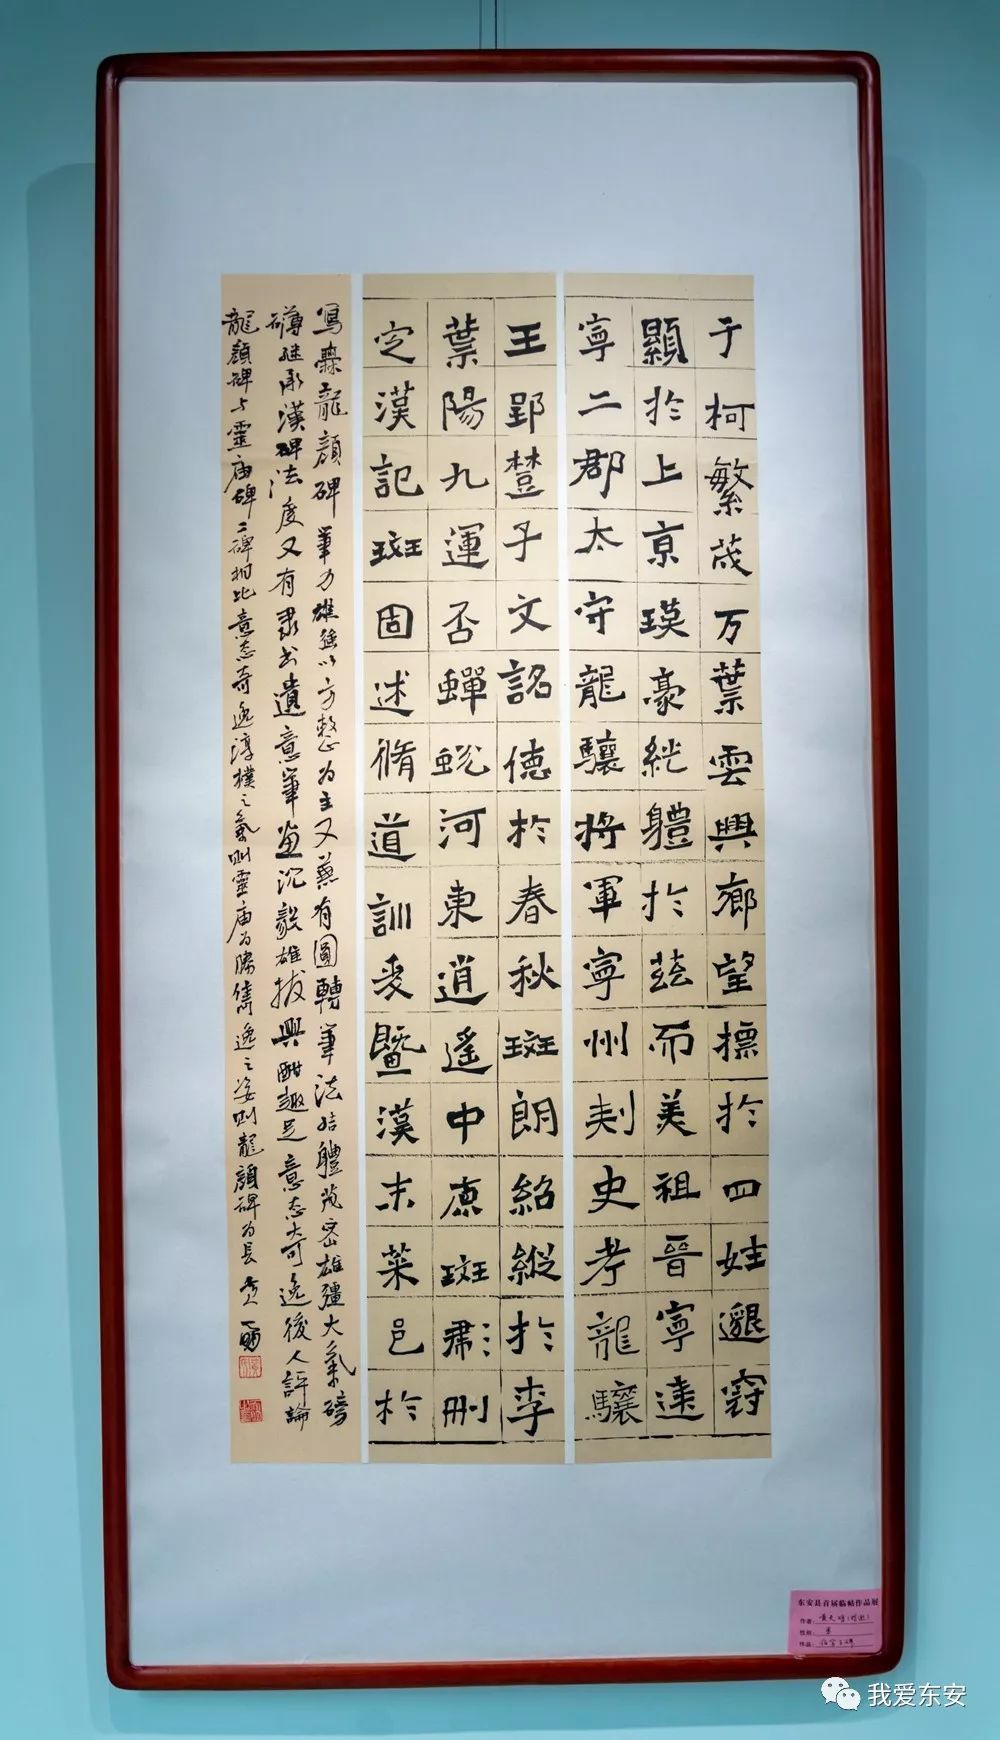 于柯繁茂万葉雲興鄉望標於四姓邈冠
顯於上京瑛豪絖軆於茲而美祖晉寧遠
寧二郡太守龍驤將軍寧州刾史考龍驤
王郢楚子文詺徳於春秋斑朗紹縱於李
葉陽九運否蟬蛻河東逍遥中原斑彪删
定漢記斑固述脩道訓爰暨漢末菜邑於
寫爨龍顔碑筆力雄強以方整為主又兼有圓轉筆法結軆茂密雄彊大氣磅
礴继承漢碑法度又有隶书遺意筆画沉毅雄拔興酣趣足意态奇逸後人評論
龍顔碑与靈庙碑二碑相比意态奇逸淳樸之氣则靈庙为勝雋逸之姿则龍顔碑为長
东安县首届临帖作品展
作者：
性别：男
作品：
我爱东安